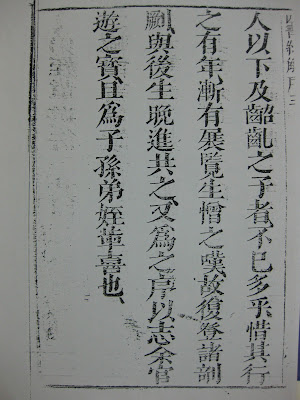 人以下及齠齔之子者、不已多乎、惜其行
之有年、漸有展覽生憎之嘆、故復登諸剞
劂、與後生晚進共之、又爲之序、以志余宦
遊之實、且爲子孫弟姪輩喜也、